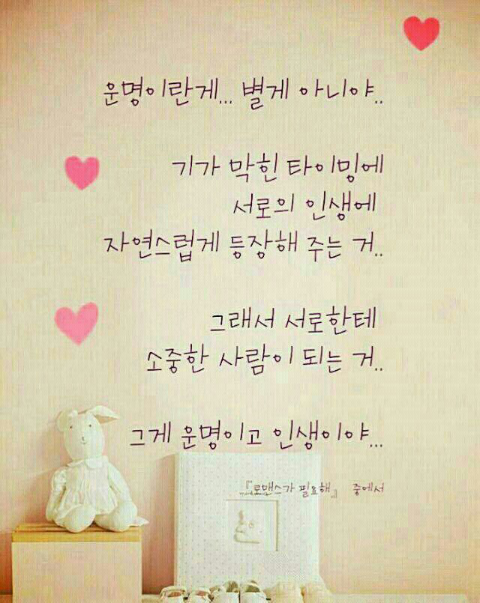 운명이란게... 별게 아니야..
기가 막힌 타이밍에
서로의 인생에
자연스럽게 등장해 주는 거..
그래서 서로한테
소중한 사람이 되는 거..
그게 운명이고 인생이야...
『로맨스가 필요해』 중에서